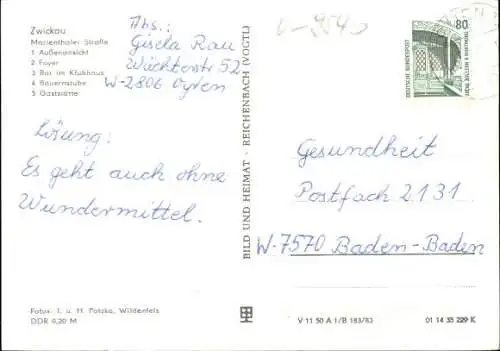 Zwickau
Marienthaler Straße
1 Außenansicht
2 Foyer
3 Bar im Klubhaus
4 Bauernstube
5 Gaststätte
Abs.:
Gisela Rau
Wächterstr 52
W-2806 Oyten
Lösung:
Es geht auch ohne
Wundermittel.
Fotos: I. u. H. Potzka, Wildenfels
DDR 0,20 M
BILD UND HEIMAT · REICHENBACH (VOGTL)
80
DEUTSCHE BUNDESPOST
Gesundheit
Postfach 2131
W-7570 Baden-Baden
V 11 50 A 1/B 183/83
01 14 35 229 K